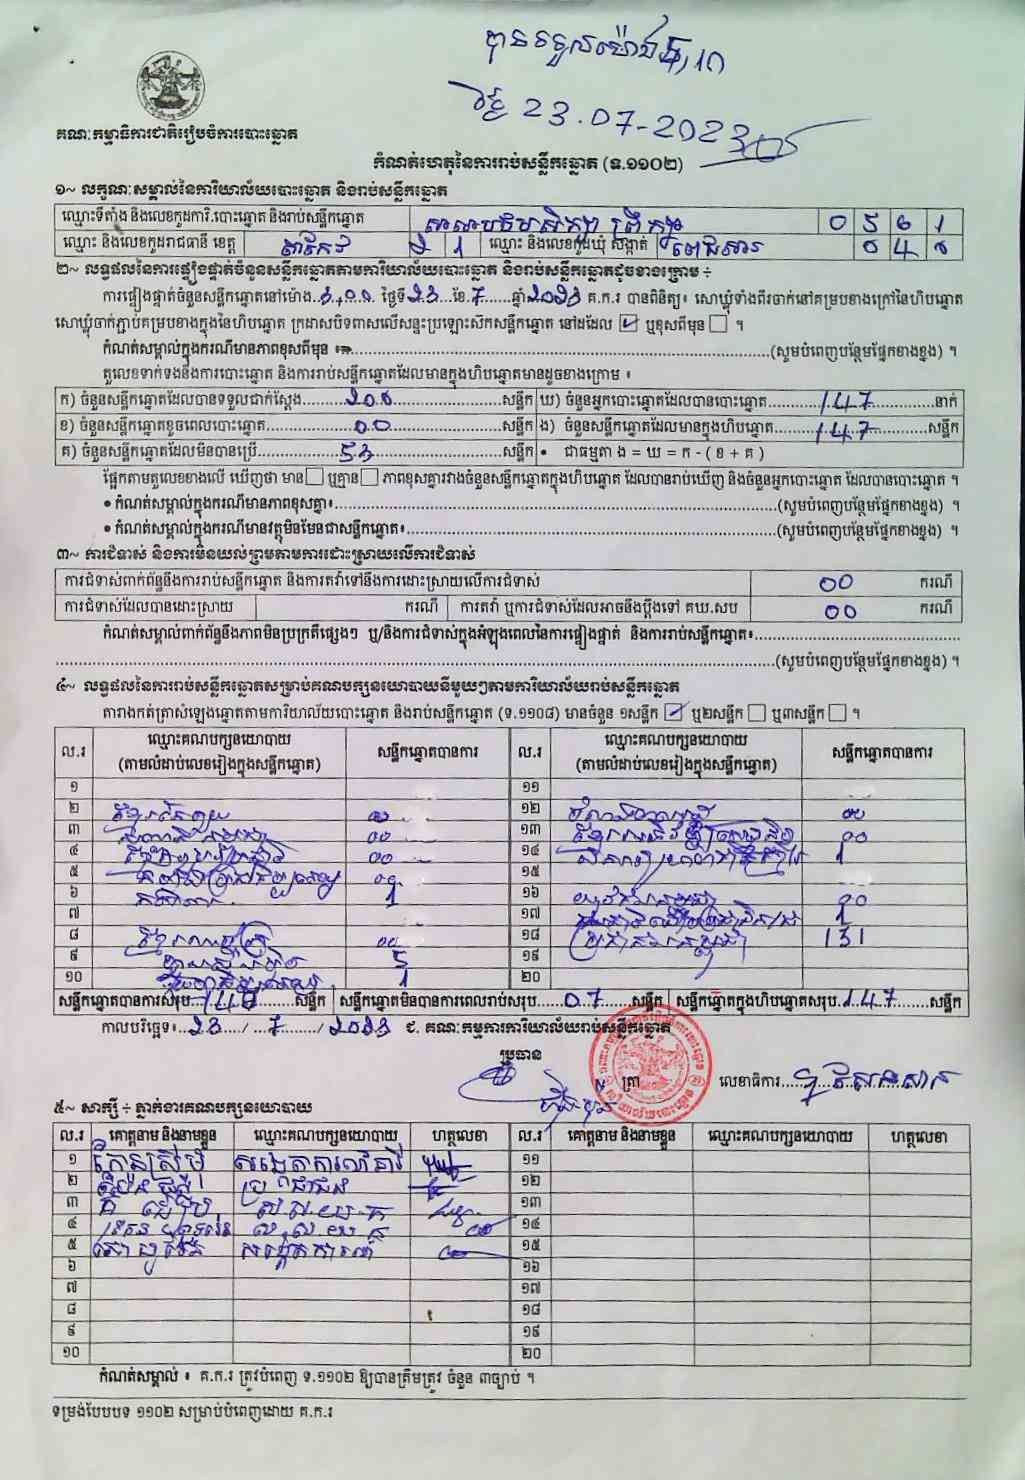 បានទទួលម៉ោង
ថ្ងៃ 23.07-2023
គណៈកម្មាធិការជាតិរៀបចំការបោះឆ្នោត
កំណត់ហេតុនៃការរាប់សន្លឹកឆ្នោត (ទ.១១០២)
១~ លក្ខណៈសម្គាល់នៃការិយាល័យបោះឆ្នោត និងរាប់សន្លឹកឆ្នោត
ឈ្មោះទីតាំង និងលេខកូដការិ.បោះឆ្នោត និងរាប់សន្លឹកឆ្នោត សាលាបឋមសិក្សា 0 5 6 1
ឈ្មោះ និងលេខកូដរាជធានី ខេត្ត តាកែវ ២ 1 ឈ្មោះ និងលេខកូដឃុំ សង្កាត់ ពេជសារ 0 4
២~ លទ្ធផលនៃការផ្ទៀងផ្ទាត់ចំនួនសន្លឹកឆ្នោតតាមការិយាល័យបោះឆ្នោត និងរាប់សន្លឹកឆ្នោតដូចខាងក្រោម ÷
ការផ្ទៀងផ្ទាត់ចំនួនសន្លឹកឆ្នោតនៅម៉ោង ថ្ងៃទី ២៣ ខែ 7 ឆ្នាំ ២០២៣ គ.ក.រ បានពិនិត្យ៖ សោឃ្លុំទាំងពីរចាក់នៅគម្របខាងក្រៅនៃហិបឆ្នោត
សោឃ្លុំចាក់ភ្ជាប់គម្របខាងក្នុងនៃហិបឆ្នោត ក្រដាសបិទពាសលើសន្ទះប្រឡោះស៊កសន្លឹកឆ្នោត នៅដដែល ☑ ឬខុសពីមុន ☐ ។
កំណត់សម្គាល់ក្នុងករណីមានភាពខុសពីមុន ៖ (សូមបំពេញបន្ថែមផ្នែកខាងខ្នង) ។
តួលេខទាក់ទងនឹងការបោះឆ្នោត និងការរាប់សន្លឹកឆ្នោតដែលមានក្នុងហិបឆ្នោតមានដូចខាងក្រោម ៖
ក) ចំនួនសន្លឹកឆ្នោតដែលបានទទួលជាក់ស្តែង ២០០ សន្លឹក ឃ) ចំនួនអ្នកបោះឆ្នោតដែលបានបោះឆ្នោត 147 នាក់
ខ) ចំនួនសន្លឹកឆ្នោតខូចពេលបោះឆ្នោត 00 សន្លឹក ង) ចំនួនសន្លឹកឆ្នោតដែលមានក្នុងហិបឆ្នោត 147 សន្លឹក
គ) ចំនួនសន្លឹកឆ្នោតដែលមិនបានប្រើ 5៣ សន្លឹក • ជាធម្មតា ង = ឃ = ក - ( ខ + គ )
ផ្អែកតាមតួលេខខាងលើ ឃើញថា មាន ☐ ឬគ្មាន ☐ ភាពខុសគ្នារវាងចំនួនសន្លឹកឆ្នោតក្នុងហិបឆ្នោត ដែលបានរាប់ឃើញ និងចំនួនអ្នកបោះឆ្នោត ដែលបានបោះឆ្នោត ។
• កំណត់សម្គាល់ក្នុងករណីមានភាពខុសគ្នា៖ (សូមបំពេញបន្ថែមផ្នែកខាងខ្នង) ។
• កំណត់សម្គាល់ក្នុងករណីមានវត្ថុមិនមែនជាសន្លឹកឆ្នោត៖ (សូមបំពេញបន្ថែមផ្នែកខាងខ្នង) ។
៣~ ការជំទាស់ និងការមិនយល់ព្រមតាមការដោះស្រាយលើការជំទាស់
ការជំទាស់ពាក់ព័ន្ធនឹងការរាប់សន្លឹកឆ្នោត និងការតវ៉ាទៅនឹងការដោះស្រាយលើការជំទាស់ 00 ករណី
ការជំទាស់ដែលបានដោះស្រាយ ករណី ការតវ៉ា ឬការជំទាស់ដែលអាចនឹងប្តឹងទៅ គឃ.សប 00 ករណី
កំណត់សម្គាល់ពាក់ព័ន្ធនឹងភាពមិនប្រក្រតីផ្សេងៗ ឬ/និងការជំទាស់ក្នុងអំឡុងពេលនៃការផ្ទៀងផ្ទាត់ និងការរាប់សន្លឹកឆ្នោត៖
(សូមបំពេញបន្ថែមផ្នែកខាងខ្នង) ។
៤~ លទ្ធផលនៃការរាប់សន្លឹកឆ្នោតសម្រាប់គណបក្សនយោបាយនីមួយៗតាមការិយាល័យរាប់សន្លឹកឆ្នោត
តារាងកត់ត្រាសំឡេងឆ្នោតតាមការិយាល័យបោះឆ្នោត និងរាប់សន្លឹកឆ្នោត (ទ.១១០៨) មានចំនួន ១សន្លឹក ☑ ឬ២សន្លឹក ☐ ឬ៣សន្លឹក ☐ ។
ល.រ ឈ្មោះគណបក្សនយោបាយ សន្លឹកឆ្នោតបានការ ល.រ ឈ្មោះគណបក្សនយោបាយ សន្លឹកឆ្នោតបានការ
(តាមលំដាប់លេខរៀងក្នុងសន្លឹកឆ្នោត) (តាមលំដាប់លេខរៀងក្នុងសន្លឹកឆ្នោត)
១ ១១
២ 00 ១២ 00
៣ 00 ១៣ 00
៤ 00 ១៤ 1
៥ 00 ១៥
៦ 1 ១៦ 00
៧ ១៧ 1
៨ 00 ១៨ ប្រជាជនកម្ពុជា 131
៩ 5 ១៩
១០ 1 ២០
សន្លឹកឆ្នោតបានការសរុប 140 សន្លឹក សន្លឹកឆ្នោតមិនបានការពេលរាប់សរុប 07 សន្លឹក សន្លឹកឆ្នោតក្នុងហិបឆ្នោតសរុប 147 សន្លឹក
កាលបរិច្ឆេទ៖ ២៣ / 7 / ២០២៣ ជ. គណៈកម្មការការិយាល័យរាប់សន្លឹកឆ្នោត
ប្រធាន
ត្រា លេខាធិការ
៥~ សាក្សី ÷ ភ្នាក់ងារគណបក្សនយោបាយ
ល.រ គោត្តនាម និងនាមខ្លួន ឈ្មោះគណបក្សនយោបាយ ហត្ថលេខា ល.រ គោត្តនាម និងនាមខ្លួន ឈ្មោះគណបក្សនយោបាយ ហត្ថលេខា
១ ១១
២ ប្រជាជន ១២
៣ ១៣
៤ ១៤
៥ ១៥
៦ ១៦
៧ ១៧
៨ ១៨
៩ ១៩
១០ ២០
កំណត់សម្គាល់ ៖ គ.ក.រ ត្រូវបំពេញ ទ.១១០២ ឱ្យបានត្រឹមត្រូវ ចំនួន ៣ច្បាប់ ។
ទម្រង់បែបបទ ១១០២ សម្រាប់បំពេញដោយ គ.ក.រ